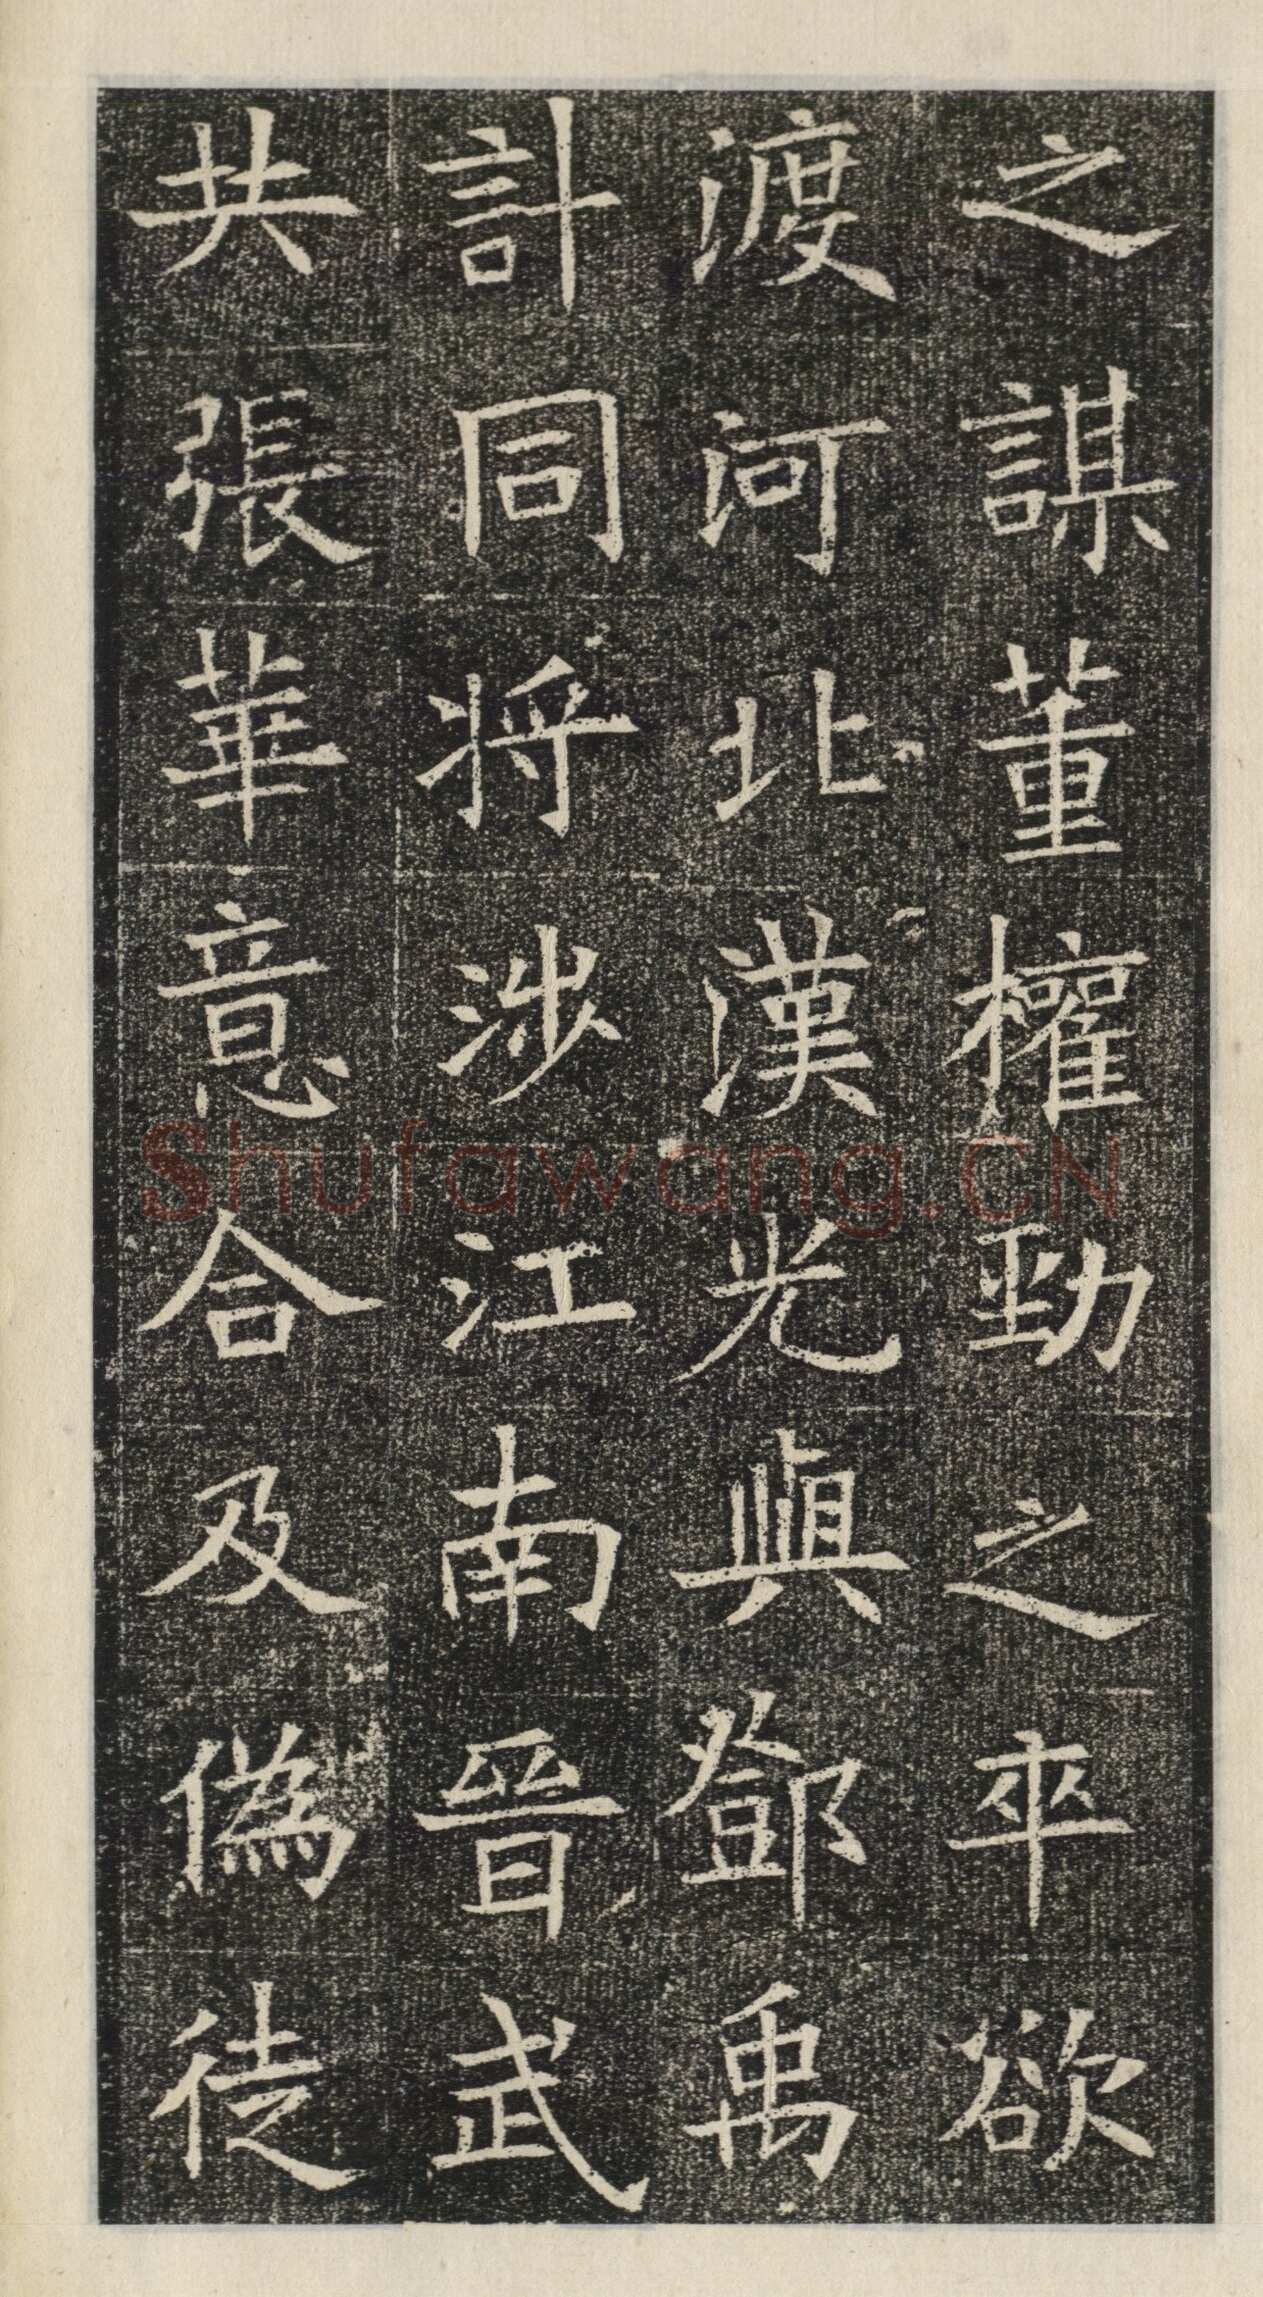 之謀董權勁之卒欲
渡河北漢光與鄧禹
計同將涉江南晉武
共張華意合及偽徒
Shufawang.CN